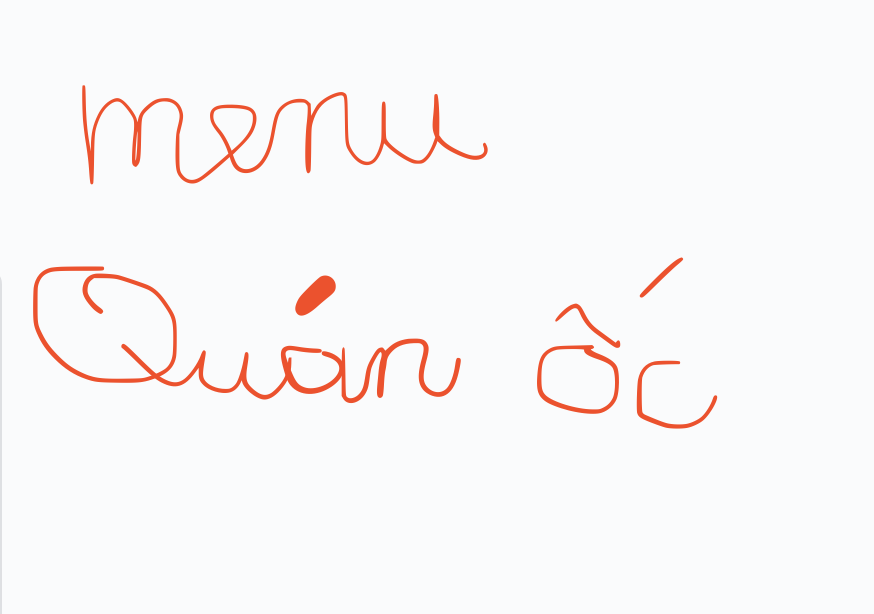 menu
Quán ốc